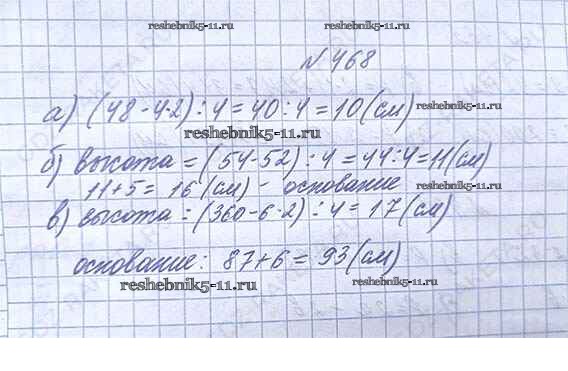 reshebnik5-11.ru
№ 468
а) (48-4·2):4=40:4=10(см) reshebnik5-11.ru
reshebnik5-11.ru
б) высота = (54-52):4=44:4=11(см)
11+5= 16 (см) - основание reshebnik5-11.ru
в) высота: (360-6·2):4=17(см)
основание: 87+6=93(см)
reshebnik5-11.ru